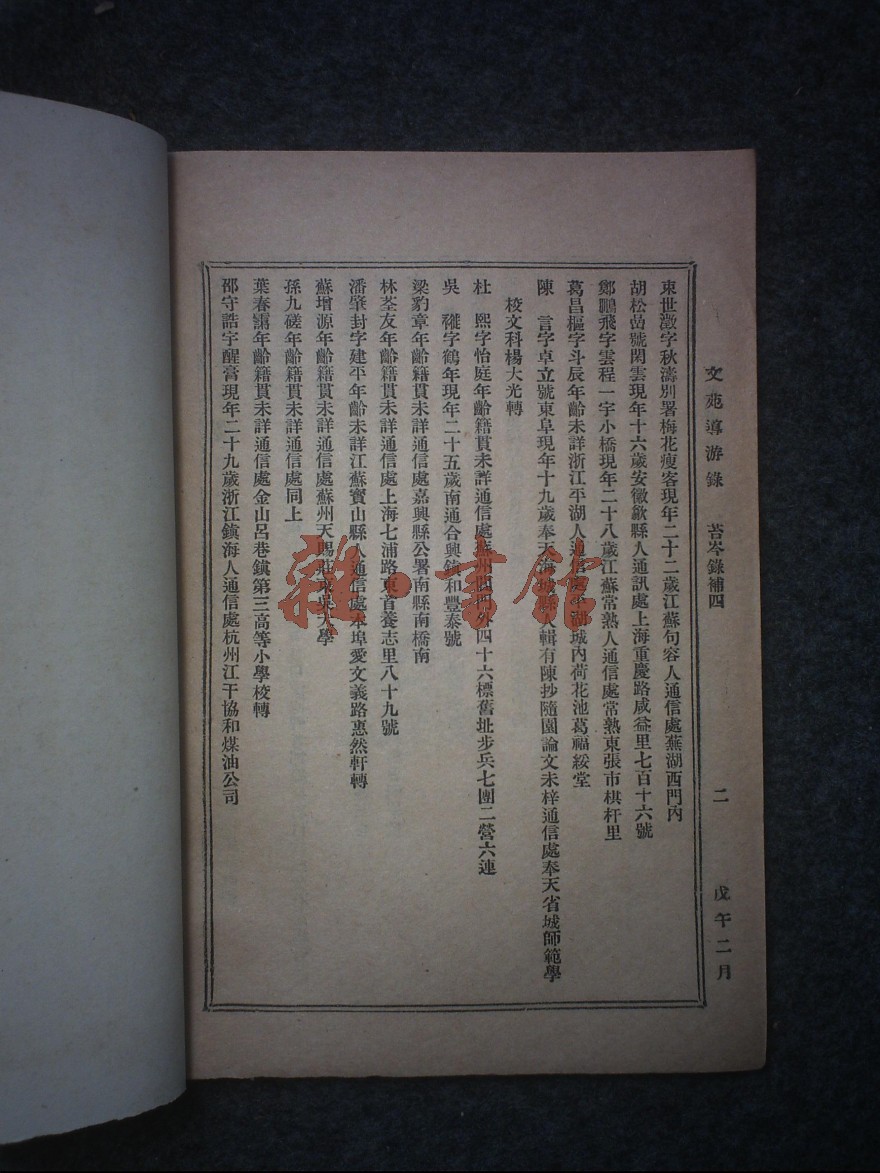 文苑導游錄　苔岑錄補四　二　戊午二月
束世澂字秋濤別署梅花瘦客現年二十二歲江蘇句容人通信處蕪湖西門內
胡松嵒號閑雲現年十六歲安徽歙縣人通訊處上海重慶路咸益里七百十六號
鄭鵬飛字雲程一字小橋現年二十八歲江蘇常熟人通信處常熟東張市棋杆里
葛昌樞字斗辰年齡未詳浙江平湖人通信處平湖城內荷花池葛福綏堂
陳　言字卓立號東阜現年十九歲奉天海城縣人輯有陳抄隨園論文未梓通信處奉天省城師範學
校文科楊大光轉
杜　熙字怡庭年齡籍貫未詳通信處蘇州閶門外四十六標舊址步兵七團二營六連
吳　字鶴年現年二十五歲南通合興鎮和豐泰號
梁豹章年齡籍貫未詳通信處嘉興縣公署南縣南橋南
林荃友年齡籍貫未詳通信處上海七浦路東首養志里八十九號
潘肇封字建平年齡未詳江蘇寶山縣人通信處本埠愛文義路惠然軒轉
蘇增源年齡籍貫未詳通信處蘇州天賜莊東吳大學
孫九磋年齡籍貫未詳通信處同上
葉春霱年齡籍貫未詳通信處金山呂巷鎮第三高等小學校轉
邵守誥字醒膏現年二十九歲浙江鎮海人通信處杭州江干協和煤油公司
雜書館